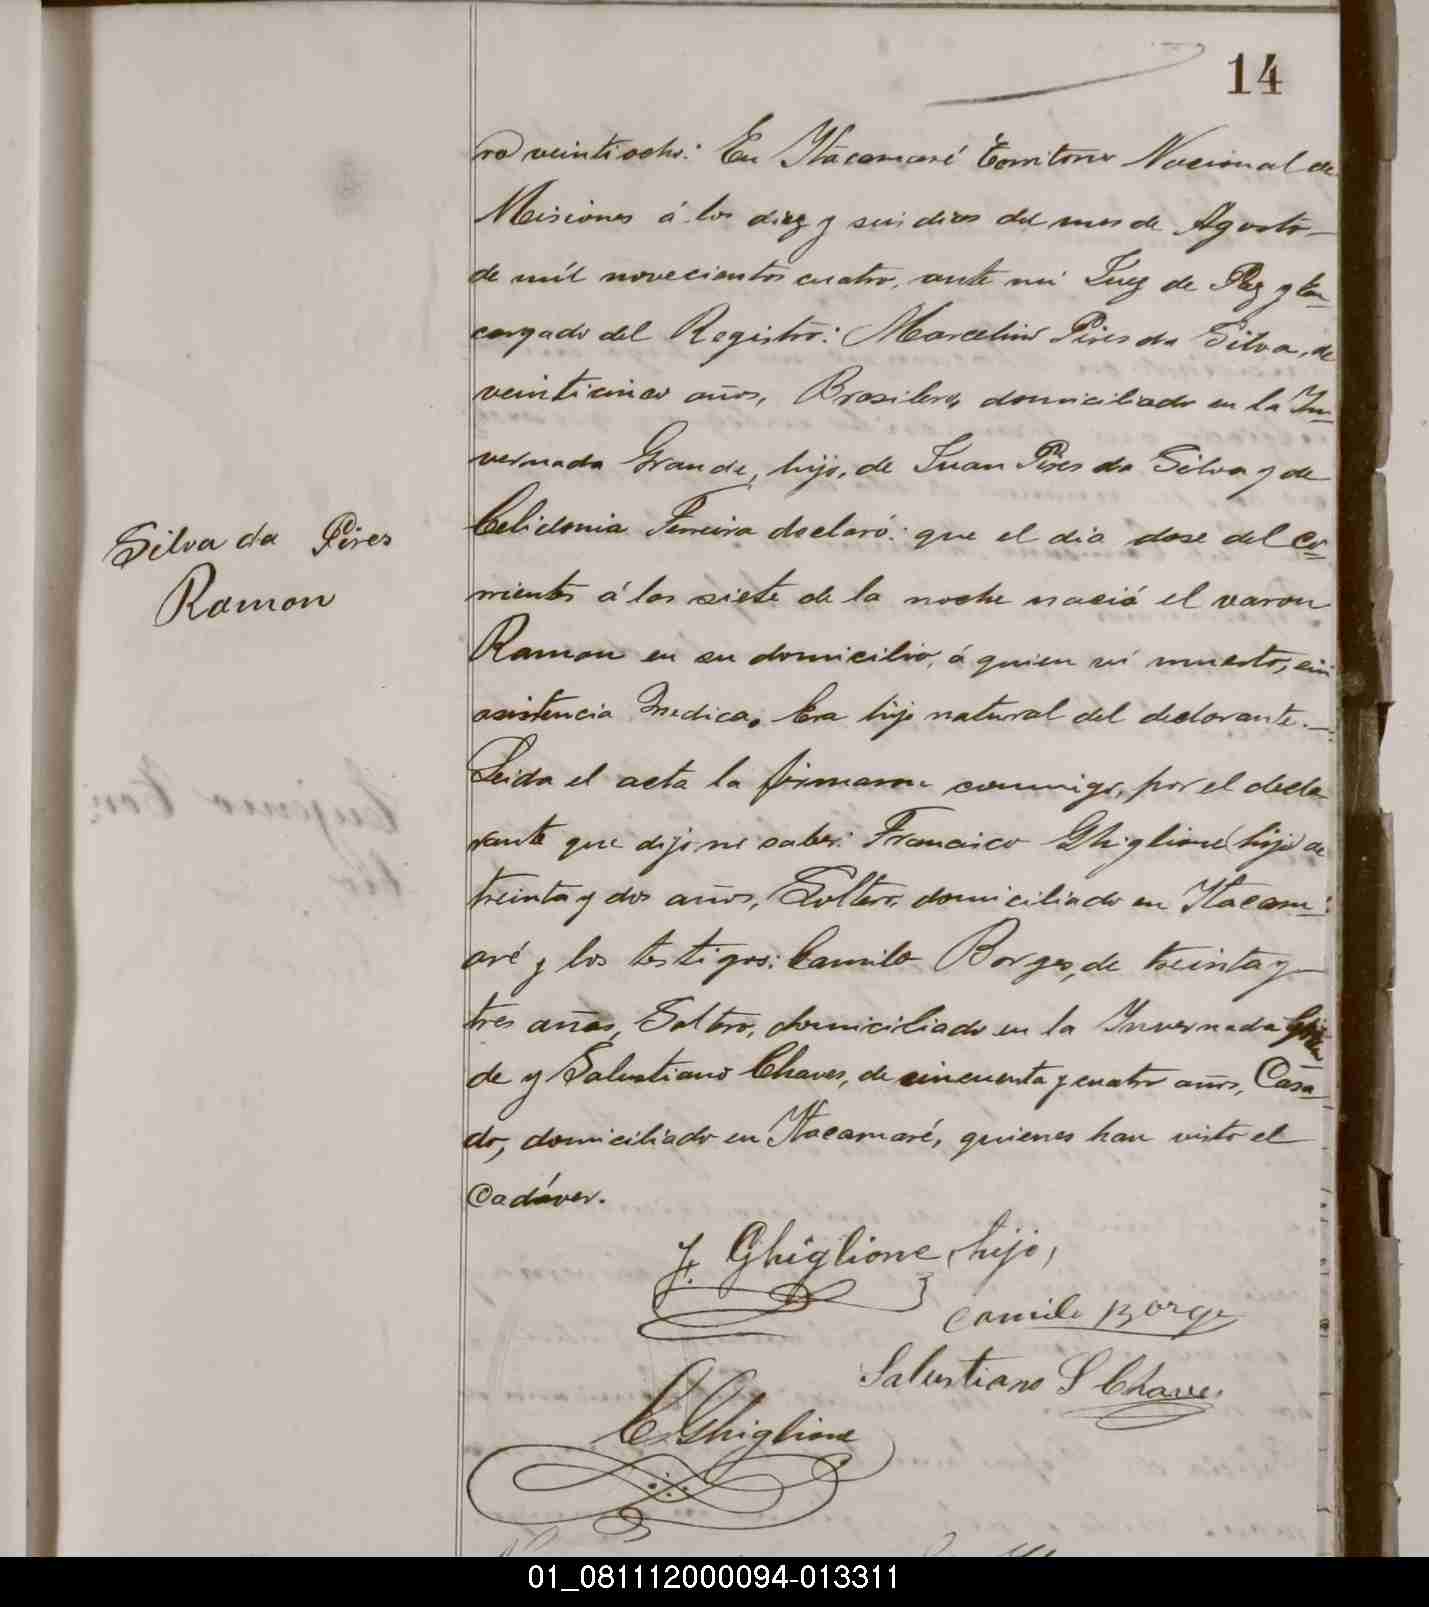 14
ro veintiocho: En Itacamaré Territorio Nacional de
Misiones á los diez y seis dias del mes de Agosto
de mil novecientos cuatro, ante mi Juez de Paz y En-
cargado del Registro: Marcelino Pires da Silva, de
veinticinco años, Brasilero, domiciliado en la In-
vernada Grande, hijo, de Juan Pires da Silva y de
Celidonia Ferreira declaró: que el dia dose del co-
rriente á las siete de la noche nació el varon
Silva da Pires
Ramon
Ramon en su domicilio, á quien vi muerto, sin
asistencia Medica. Era hijo natural del declarante.—
Leida el acta la firmaron conmigo, por el decla-
rante que dijo no saber: Francisco Ghiglione (hijo) de
treinta y dos años, Soltero, domiciliado en Itacam-
aré y los testigos: Camilo Borges, de treinta y
tres años, Soltero, domiciliado en la Invernada Gran
de y Salustiano Chaves, de cincuenta y cuatro años, Casa-
do, domiciliado en Itacamaré, quienes han visto el
Cadáver.
F. Ghiglione (hijo)
Camilo Borges
Salustiano S Chaves
C Ghiglione
01_081112000094-013311